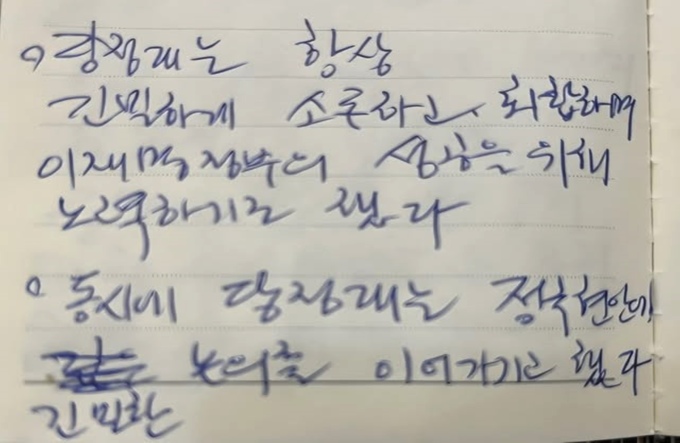 ○ 당정대는 항상
긴밀하게 소통하고, 화합하며
이재명 정부의 성공을 위해
노력하기로 했다
○ 동시에 당정대는 정국현안에
논의를 이어가기로 했다
긴밀한